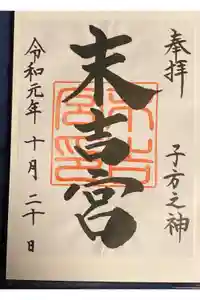 奉拝
子方之神
末吉宮
令和元年 十月 二十日